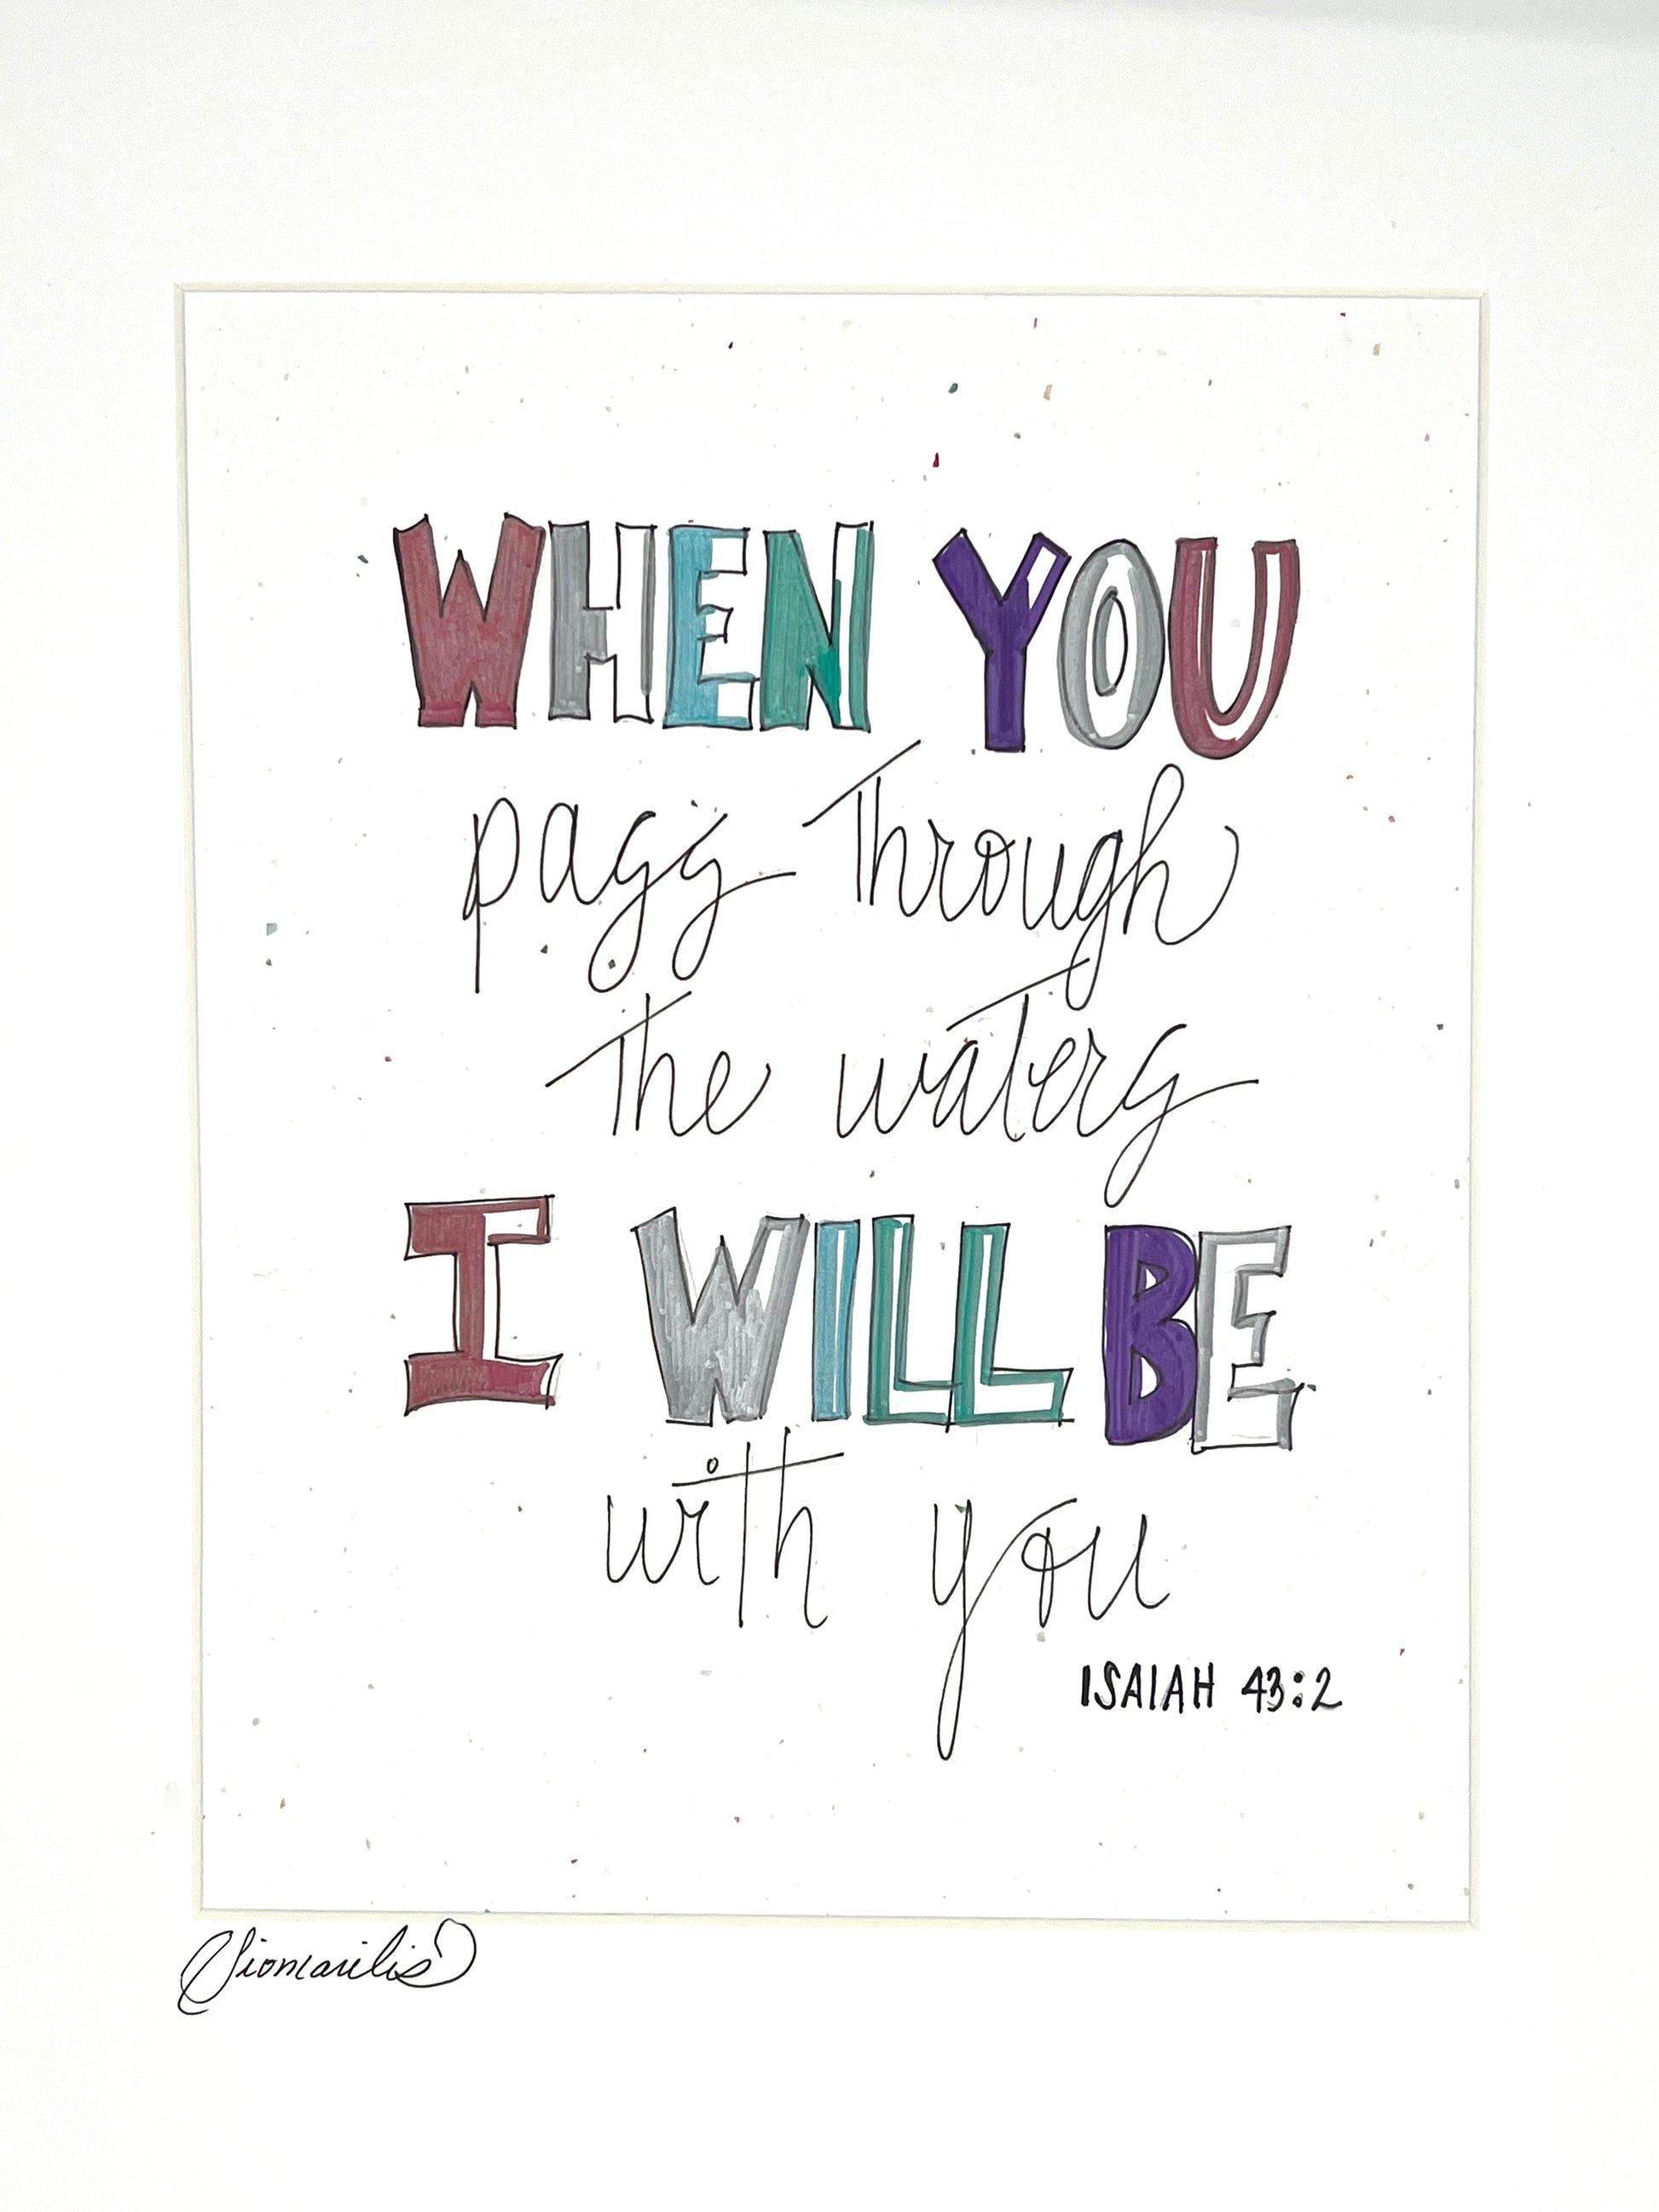 WHEN YOU
pass through
the waters
I WILL BE
with you
ISAIAH 43:2
Siomarilis